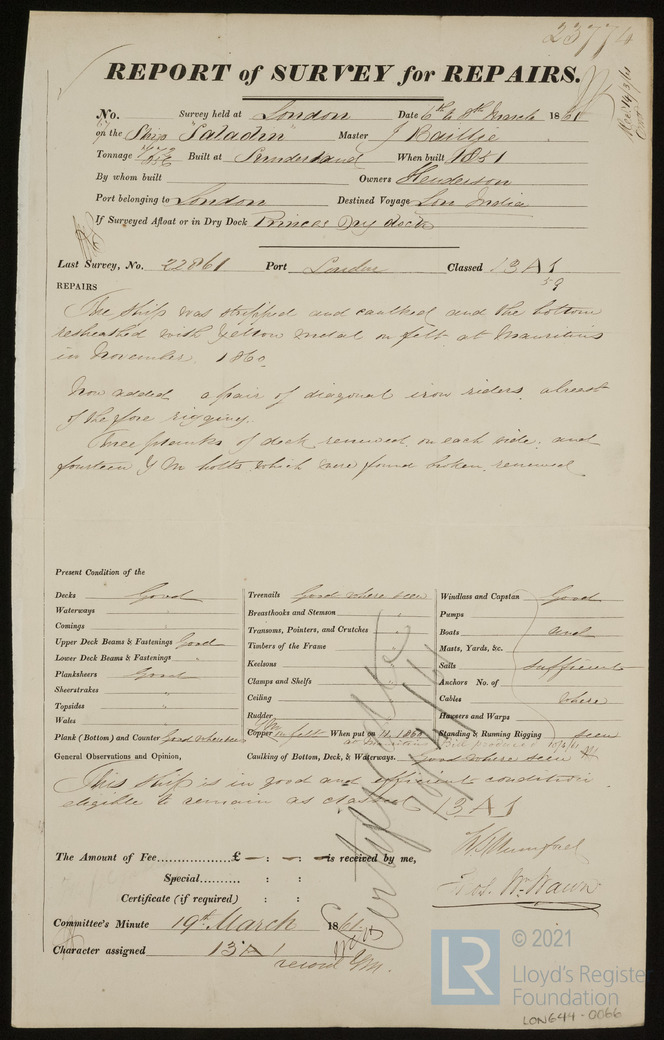 23774
REPORT of SURVEY for REPAIRS.
No. Survey held at London Date 6th & 8th March 1861
on the Ship "Paladin" Master J Baillie
Tonnage 856 Built at Sunderland When built 1851
By whom built Owners Henderson
Port belonging to London Destined Voyage Lon India
If Surveyed Afloat or in Dry Dock Princes Dry dock
Last Survey, No. 22861 Port London Classed 13 A 1
59
REPAIRS
The Ship was stripped and caulked and the bottom
resheathed with Yellow metal on felt at Mauritius
in November 1860.
Now added a pair of diagonal iron riders abreast
of the fore rigging.
Three planks of deck renewed on each side, and
fourteen Y M bolts which were found broken renewed
Present Condition of the
Decks Good
Waterways "
Comings "
Upper Deck Beams & Fastenings Good
Lower Deck Beams & Fastenings "
Planksheers Good
Sheerstrakes "
Topsides "
Wales "
Plank (Bottom) and Counter Good where seen
Treenails Good where seen
Breasthooks and Stemson "
Transoms, Pointers, and Crutches "
Timbers of the Frame
Keelsons
Clamps and Shelfs
Ceiling
Rudder
YM
Copper on felt When put on 11.1860
at Mauritius
Caulking of Bottom, Deck, & Waterways. Good where seen
Windlass and Capstan Good
Pumps
Boats and
Masts, Yards, &c.
Sails Sufficient
Anchors No. of
Cables where
Hawsers and Warps
Standing & Running Rigging seen
Bill produced 15/3/61
General Observations and Opinion,
This ship is in good and efficient condition
eligible to remain as classed 13 A 1
The Amount of Fee £ : : is received by me,
Special : :
Certificate (if required) : :
H J Mumford
Thos. Wm. Wawn
Committee's Minute 19th March 1861
Character assigned 13 A 1
record YM.
© 2021
LR
Lloyd's Register
Foundation
LON644-0066